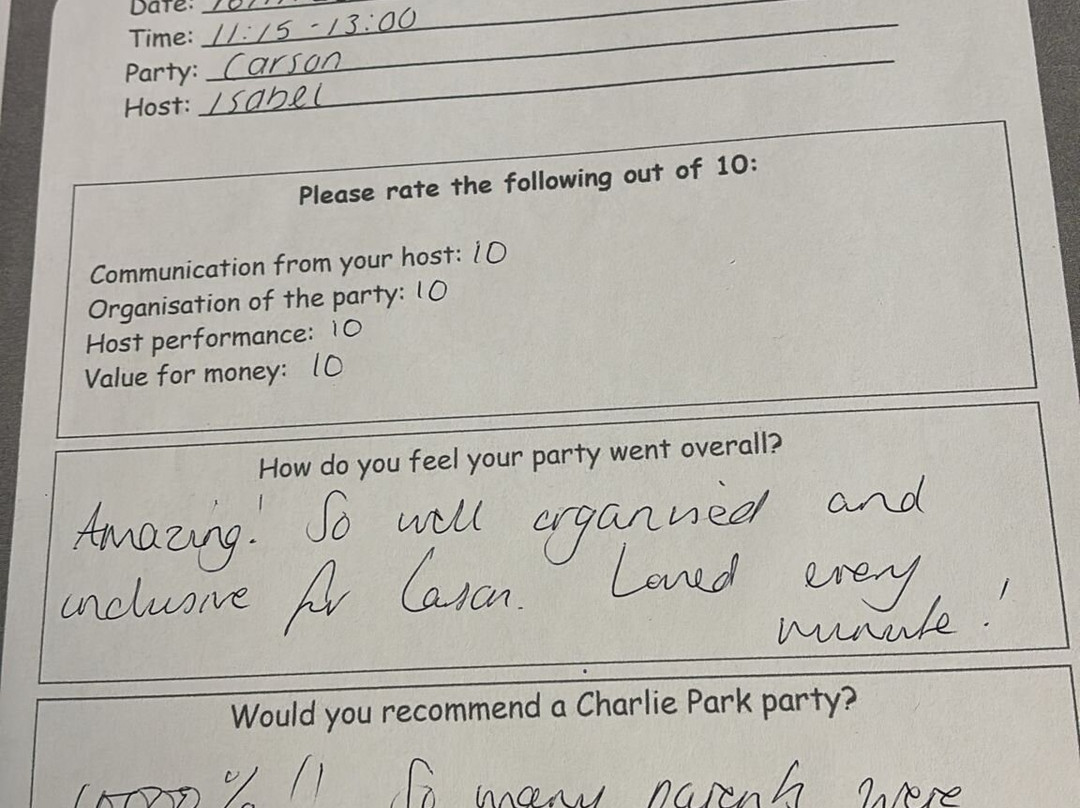 Date:
Time: 11:15 - 13:00
Party: Carson
Host: Isabel
Please rate the following out of 10:
Communication from your host: 10
Organisation of the party: 10
Host performance: 10
Value for money: 10
How do you feel your party went overall?
Amazing! So well organised and
inclusive for Carson. Loved every
minute!
Would you recommend a Charlie Park party?
So many parents were